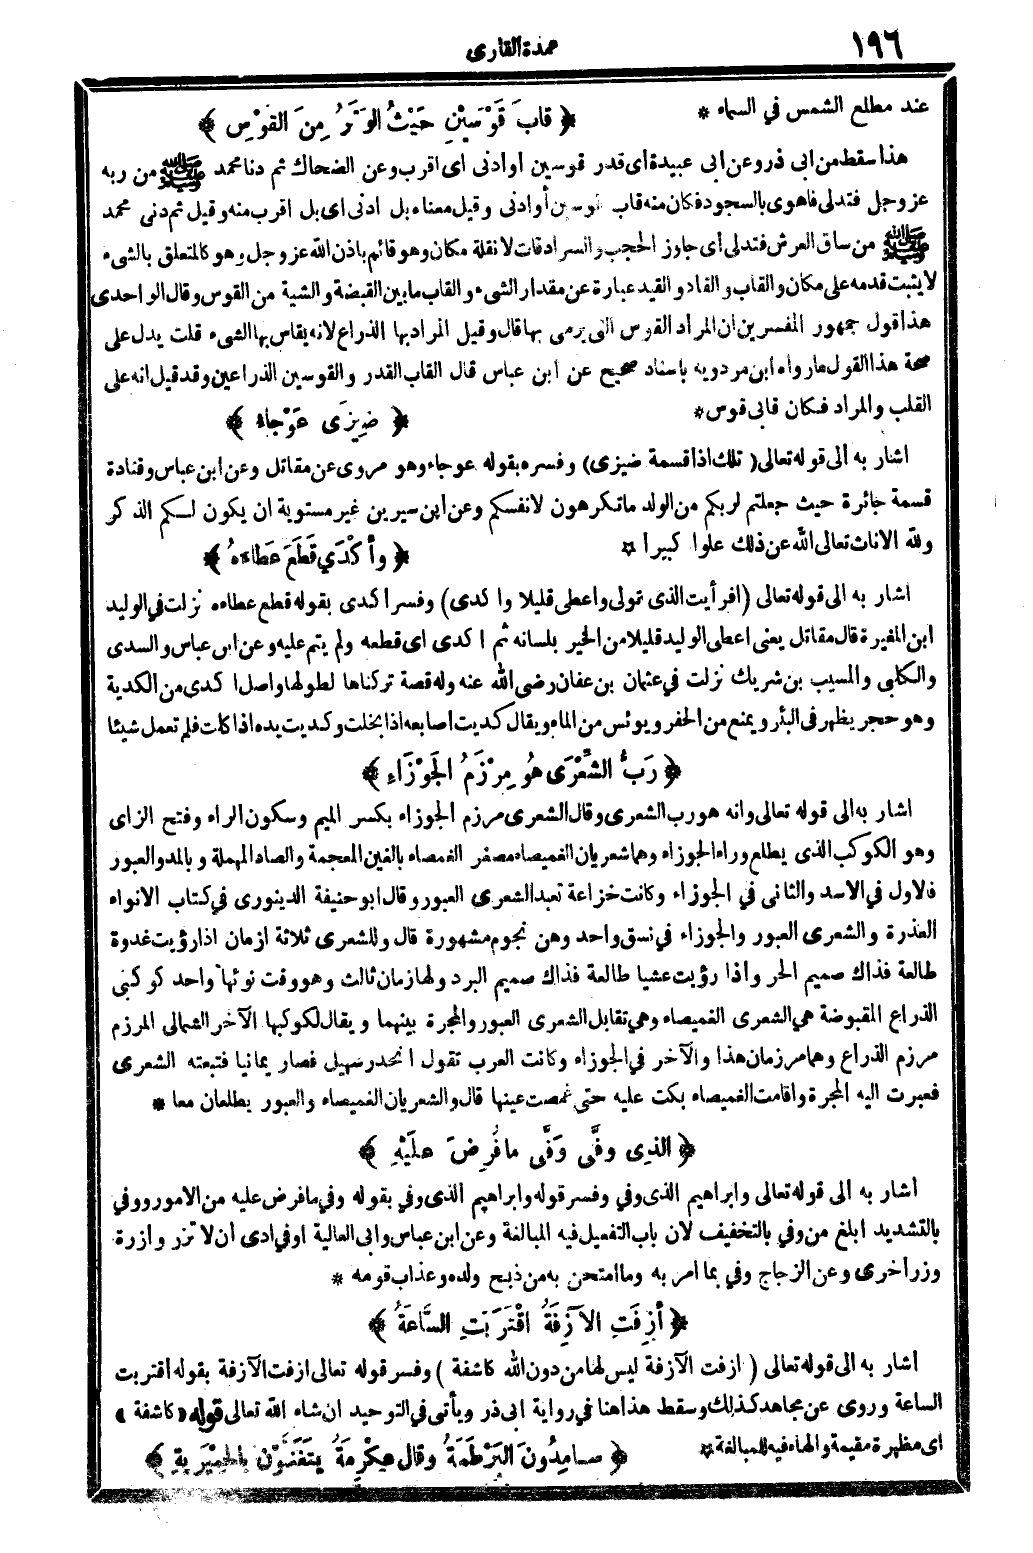 ١٩٦
عمدة القارى
عند مطلع الشمس في السماء * ﴿ قابَ قَوْسَيْنِ حَيْثُ الوَتَرُ مِنَ القَوْسِ ﴾
هذا سقط من ابى ذر وعن ابى عبيدة اى قدر قوسين او ادنى اى اقرب وعن الضحاك ثم دنا محمد ﷺ من ربه
عز وجل فتدلى فاهوى بالسجود فكان منه قاب قوسين أو أدنى وقيل معناه بل ادنى اى بل اقرب منه وقيل ثم دنى محمد
ﷺ من ساق العرش فتدلى أى جاوز الحجب والسرادقات لا نقلة مكان وهو قائم باذن الله عز وجل وهو كالمتعلق بالشىء
لا يثبت قدمه على مكان والقاب والقاد والقيد عبارة عن مقدار الشىء والقاب مابين القبضة والشية من القوس وقال الواحدى
هذا قول جمهور المفسرين ان المراد القوس التى يرمى بها قال وقيل المراد بها الذراع لانه يقاس بها الشىء قلت يدل على
صحة هذا القول ما رواه ابن مردويه باسناد صحيح عن ابن عباس قال القاب القدر والقوسين الذراعين وقد قيل انه على
القلب والمراد فكان قابى قوس * ﴿ ضِيزَى عَوْجاءُ ﴾
اشار به الى قوله تعالى ( تلك اذا قسمة ضيزى ) وفسره بقوله عوجاء وهو مروى عن مقاتل وعن ابن عباس وقتادة
قسمة جائرة حيث جعلتم لربكم من الولد ما تكرهون لانفسكم وعن ابن سيرين غير مستوية ان يكون لكم الذكر
ولله الاناث تعالى الله عن ذلك علوا كبيرا * ﴿ وأَكْدَى قَطَعَ عَطاءَهُ ﴾
اشار به الى قوله تعالى ( افرأيت الذى تولى واعطى قليلا واكدى ) وفسر اكدى بقوله قطع عطاءه نزلت في الوليد
ابن المغيرة قال مقاتل يعنى اعطى الوليد قليلا من الخير بلسانه ثم اكدى اى قطعه ولم يتم عليه وعن ابى عباس والسدى
والكلبى والمسيب بن شريك نزلت في عثمان بن عفان رضى الله عنه وله قصة تركناها لطولها واصل اكدى من الكدية
وهو حجر يظهر فى البئر ويمنع من الحفر ويوئس من الماء ويقال كديت اصابعه اذا بخلت وكديت يده اذا كلت فلم تعمل شيئا
﴿ رَبُّ الشِّعْرَى هُوَ مِرْزَمُ الجَوْزَاءِ ﴾
اشار به الى قوله تعالى وانه هو رب الشعرى وقال الشعرى مرزم الجوزاء بكسر الميم وسكون الراء وفتح الزاى
وهو الكوكب الذى يطلع وراء الجوزاء وهما شعريان الغميصاء مصغر الغمصاء بالغين المعجمة والصاد المهملة وبالمد والعبور
فالاول في الاسد والثانى في الجوزاء وكانت خزاعة تعبد الشعرى العبور وقال ابو حنيفة الدينورى في كتاب الانواء
العذرة والشعرى العبور والجوزاء في نسق واحد وهن نجوم مشهورة قال وللشعرى ثلاثة ازمان اذا رؤيت غدوة
طالعة فذاك صميم الحر واذا رؤيت عشيا طالعة فذاك صميم البرد ولها زمان ثالث وهو وقت نوئها واحد كوكبى
الذراع المقبوضة هي الشعرى الغميصاء وهي تقابل الشعرى العبور والمجرة بينهما ويقال لكوكبها الآخر الشمالى المرزم
مرزم الذراع وهما مرزمان هذا والآخر في الجوزاء وكانت العرب تقول انحدر سهيل فصار يمانيا فتبعته الشعرى
فعبرت اليه المجرة واقامت الغميصاء بكت عليه حتى غمصت عينها قال والشعريان الغميصاء والعبور يطلعان معا *
﴿ الذِى وفَّى وَفَّى ما فُرِضَ علَيْهِ ﴾
اشار به الى قوله تعالى وابراهيم الذى وفي وفسر قوله وابراهيم الذى وفي بقوله وفي ما فرض عليه من الامور ووفي
بالتشديد ابلغ من وفي بالتخفيف لان باب التفعيل فيه المبالغة وعن ابن عباس وابى العالية اوفى ادى ان لا تزر وازرة
وزر أخرى وعن الزجاج وفي بما امر به وما امتحن به من ذبح ولده وعذاب قومه *
﴿ أزِفَتِ الآزِفَةُ اقْتَرَبَتِ السَّاعَةُ ﴾
اشار به الى قوله تعالى ( ازفت الآزفة ليس لها من دون الله كاشفة ) وفسر قوله تعالى ازفت الآزفة بقوله اقتربت
الساعة وروى عن مجاهد كذلك وسقط هذا هنا في رواية ابى ذر ويأتى في التوحيد ان شاء الله تعالى قوله « كاشفة »
اى مظهرة مقيمة والهاء فيه للمبالغة * ﴿ سامِدُونَ البَرْطَمَةُ وقال عِكْرِمَةُ يَتَغَنَّوْنَ بالحِمْيَرِيةِ ﴾